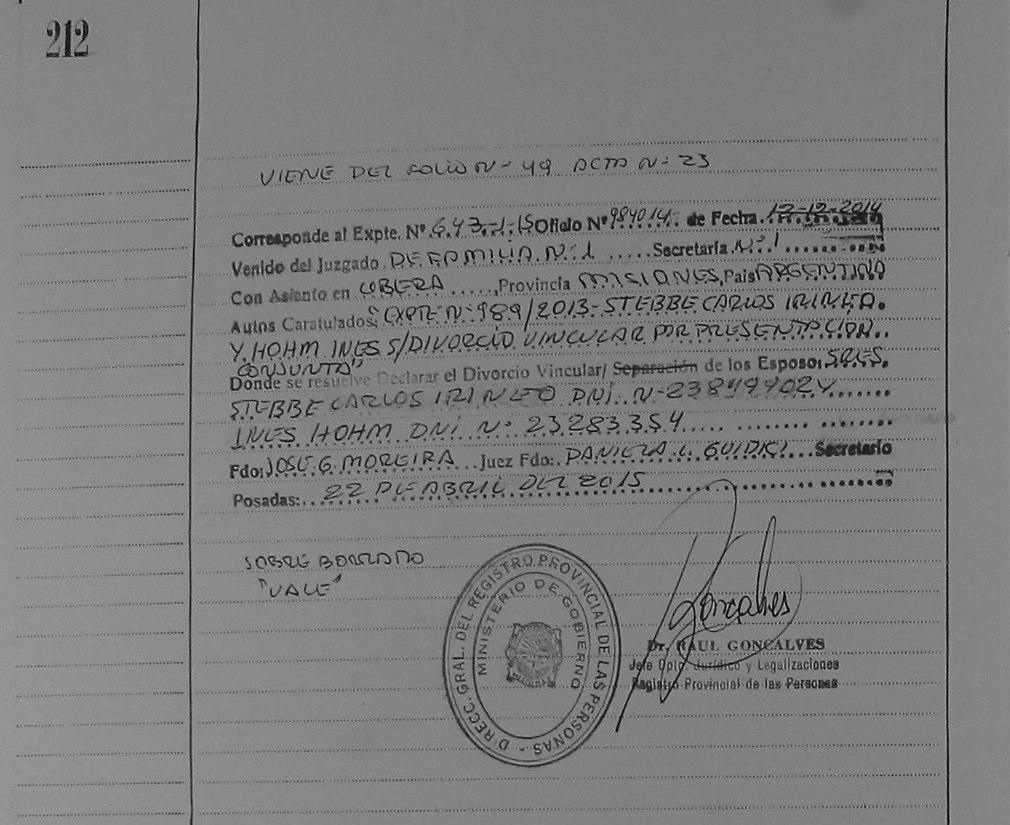 212
VIENE DEL FOLIO N- 49 ACTA N- 23
Corresponde al Expte. Nº 643-J-15 Oficio Nº 984014 de Fecha 12-12-2014
Venido del Juzgado DE FAMILIA N-1 Secretaría N-1
Con Asiento en OBERA, Provincia MISIONES, Pais ARGENTINA
Autos Caratulados: "EXPTE N- 989/2013- STEBBE CARLOS IRINEO
Y HOHM INES S/DIVORCIO VINCULAR POR PRESENTACION
CONJUNTA"
Donde se resuelve Declarar el Divorcio Vincular/ Separación de los Esposo: SRES.
STEBBE CARLOS IRINEO DNI. N- Y
INES HOHM DNI N- 23.283.354
Fdo: JOSE G. MOREIRA Juez Fdo: DANIELA L. GUIDICI Secretario
Posadas: 22 DE ABRIL DEL 2015
SOBRE BORRADO
"VALE"
DIRECC. GRAL. DEL REGISTRO PROVINCIAL DE LAS PERSONAS -
MINISTERIO DE GOBIERNO
Goncalves
Dr. RAUL GONCALVES
Jefe Dpto. Jurídico y Legalizaciones
Registro Provincial de las Personas